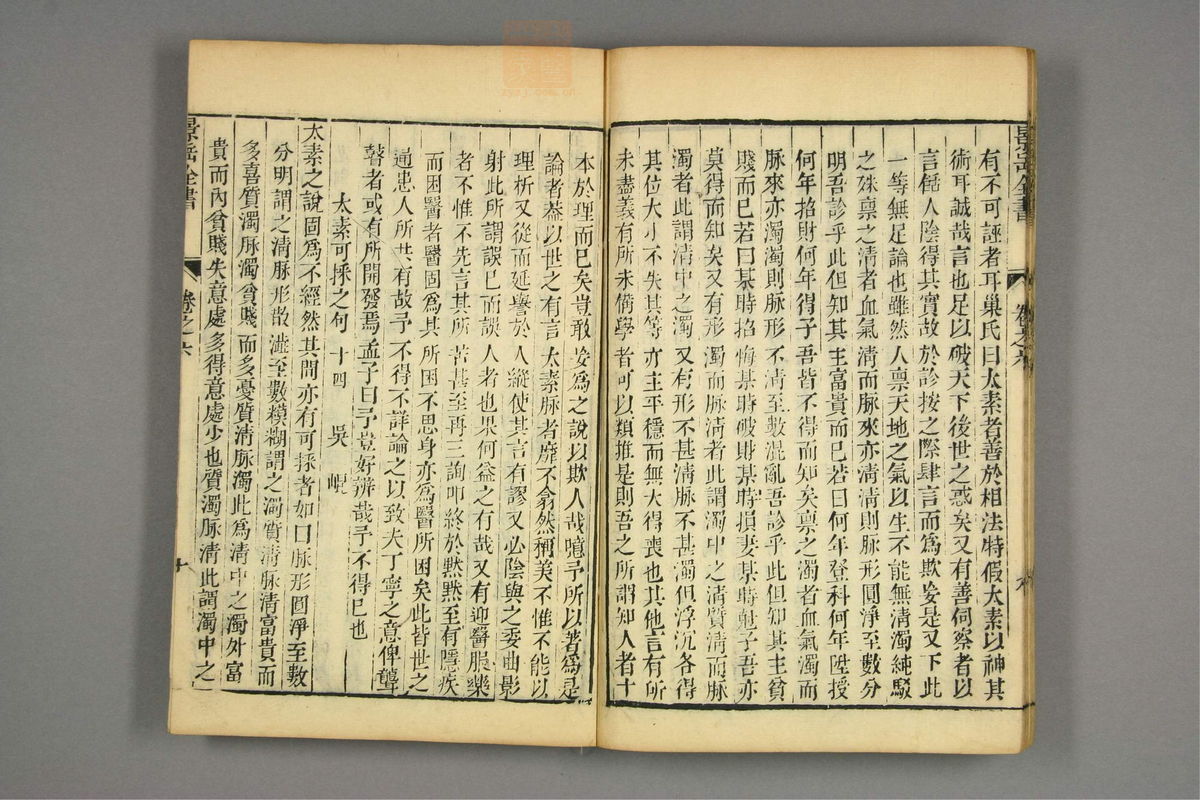 景岳全書
卷之六
有不可誣者耳巢氏曰太素者善於相法特假太素以神其
術耳誠哉言也足以破天下後世之惑矣又有善伺察者以
言餂人陰得其實故於診按之際肆言而爲欺妄是又下此
一等無足論也雖然人禀天地之氣以生不能無清濁純駁
之殊禀之清者血氣清而脈來亦清清則脈形圓淨至數分
明吾診乎此但知其主富貴而已若曰何年登科何年陞授
何年招財何年得子吾皆不得而知矣禀之濁者血氣濁而
脈來亦濁濁則脈形不清至數混亂吾診乎此但知其主貧
賤而已若曰某時招悔某時破財某時損妻某時尅子吾亦
莫得而知矣又有形濁而脈清者此謂濁中之清質清而脈
濁者此謂清中之濁又有形不甚清脈不甚濁但浮沉各得
其位大小不失其等亦主平穩而無大得喪也其他言有所
未盡義有所未備學者可以類推是則吾之所謂知人者十
本於理而已矣豈敢妄爲之說以欺人哉噫予所以著爲是
論者葢以世之有言太素脈者靡不翕然稱美不惟不能以
理析又從而延譽於人縱使其言有謬又必陰與之委曲影
射此所謂誤已而誤人者也果何益之有哉又有迎醫服藥
者不惟不先言其所苦甚至再三詢叩終於默默至有隱疾
而困醫者醫固爲其所困不思身亦爲醫所困矣此皆世之
通患人所共有故予不得不詳論之以致夫丁寧之意俾聾
瞽者或有所開發焉孟子曰予豈好辨哉予不得已也
太素可採之句 十四 吳 崐
太素之說固爲不經然其間亦有可採者如曰脈形圓淨至數
分明謂之清脈形散澁至數糢糊謂之濁質清脈清富貴而
多喜質濁脈濁貧賤而多憂質清脈濁此爲清中之濁外富
貴而內貧賤失意處多得意處少也質濁脈清此謂濁中之
景岳全書
卷之六
十